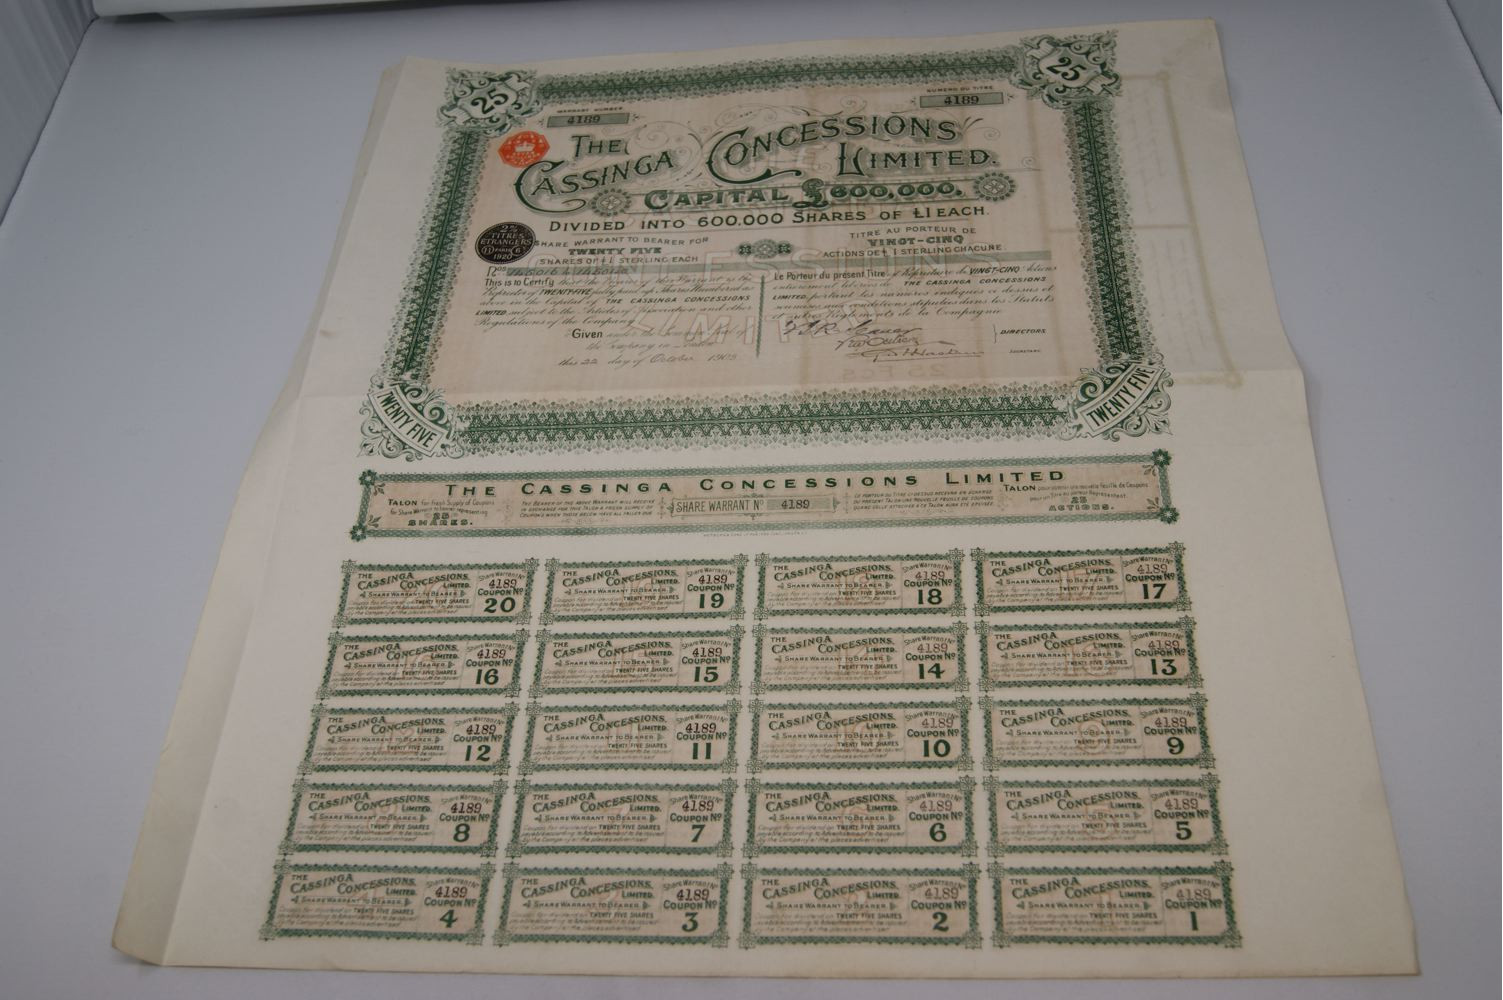 25
25
WARRANT NUMBER
4189
NUMERO DU TITRE
4189
THE
CASSINGA CONCESSIONS
LIMITED.
CAPITAL £600,000.
DIVIDED INTO 600.000 SHARES OF £1 EACH.
2%
TITRES
ETRANGERS
PARIS 6
1920
SHARE WARRANT TO BEARER FOR
TWENTY FIVE
SHARES OF £1 STERLING EACH
TITRE AU PORTEUR DE
VINGT-CINQ
ACTIONS DE £1 STERLING CHACUNE.
This is to Certify that the Bearer of this Warrant is the
Proprietor of TWENTY-FIVE fully paid up Shares Numbered as
above in the Capital of THE CASSINGA CONCESSIONS
LIMITED, subject to the Articles of Association and other
Regulations of the Company.
Given under the Common Seal of
the Company in
this 22 day of October 1909
Le Porteur du présent Titre est Propriétaire de VINGT-CINQ Actions
entièrement libérées de THE CASSINGA CONCESSIONS
LIMITED, portant les numéros indiqués ci dessus et
soumises aux conditions stipulées dans les Statuts
et autres Règlements de la Compagnie
DIRECTORS.
SECRETARY.
25 Fcs
TWENTY FIVE
TWENTY FIVE
THE CASSINGA CONCESSIONS LIMITED
TALON for Fresh Supply of Coupons
for Share Warrant to bearer representing
25
SHARES.
THE BEARER OF THE ABOVE WARRANT WILL RECEIVE
IN EXCHANGE FOR THIS TALON A FRESH SUPPLY OF
COUPONS WHEN THOSE BELOW HAVE ALL FALLEN DUE
SHARE WARRANT No 4189
LE PORTEUR DU TITRE CI-DESSUS RECEVRA EN ECHANGE
DU PRESENT TALON UNE NOUVELLE FEUILLE DE COUPONS
QUAND CELLE ATTACHEE A CE TALON AURA ETE EPUISEE.
TALON pour obtenir une nouvelle Feuille de Coupons
pour un Titre au porteur Représentant
25
ACTIONS.
THE CASSINGA CONCESSIONS LIMITED. Share Warrant No 4189
SHARE WARRANT TO BEARER. COUPON No 20
THE CASSINGA CONCESSIONS LIMITED. Share Warrant No 4189
SHARE WARRANT TO BEARER. COUPON No 19
THE CASSINGA CONCESSIONS LIMITED. Share Warrant No 4189
SHARE WARRANT TO BEARER. COUPON No 18
THE CASSINGA CONCESSIONS LIMITED. Share Warrant No 4189
SHARE WARRANT TO BEARER. COUPON No 17
THE CASSINGA CONCESSIONS LIMITED. Share Warrant No 4189
SHARE WARRANT TO BEARER. COUPON No 16
THE CASSINGA CONCESSIONS LIMITED. Share Warrant No 4189
SHARE WARRANT TO BEARER. COUPON No 15
THE CASSINGA CONCESSIONS LIMITED. Share Warrant No 4189
SHARE WARRANT TO BEARER. COUPON No 14
THE CASSINGA CONCESSIONS LIMITED. Share Warrant No 4189
SHARE WARRANT TO BEARER. COUPON No 13
THE CASSINGA CONCESSIONS LIMITED. Share Warrant No 4189
SHARE WARRANT TO BEARER. COUPON No 12
THE CASSINGA CONCESSIONS LIMITED. Share Warrant No 4189
SHARE WARRANT TO BEARER. COUPON No 11
THE CASSINGA CONCESSIONS LIMITED. Share Warrant No 4189
SHARE WARRANT TO BEARER. COUPON No 10
THE CASSINGA CONCESSIONS LIMITED. Share Warrant No 4189
SHARE WARRANT TO BEARER. COUPON No 9
THE CASSINGA CONCESSIONS LIMITED. Share Warrant No 4189
SHARE WARRANT TO BEARER. COUPON No 8
THE CASSINGA CONCESSIONS LIMITED. Share Warrant No 4189
SHARE WARRANT TO BEARER. COUPON No 7
THE CASSINGA CONCESSIONS LIMITED. Share Warrant No 4189
SHARE WARRANT TO BEARER. COUPON No 6
THE CASSINGA CONCESSIONS LIMITED. Share Warrant No 4189
SHARE WARRANT TO BEARER. COUPON No 5
THE CASSINGA CONCESSIONS LIMITED. Share Warrant No 4189
SHARE WARRANT TO BEARER. COUPON No 4
THE CASSINGA CONCESSIONS LIMITED. Share Warrant No 4189
SHARE WARRANT TO BEARER. COUPON No 3
THE CASSINGA CONCESSIONS LIMITED. Share Warrant No 4189
SHARE WARRANT TO BEARER. COUPON No 2
THE CASSINGA CONCESSIONS LIMITED. Share Warrant No 4189
SHARE WARRANT TO BEARER. COUPON No 1